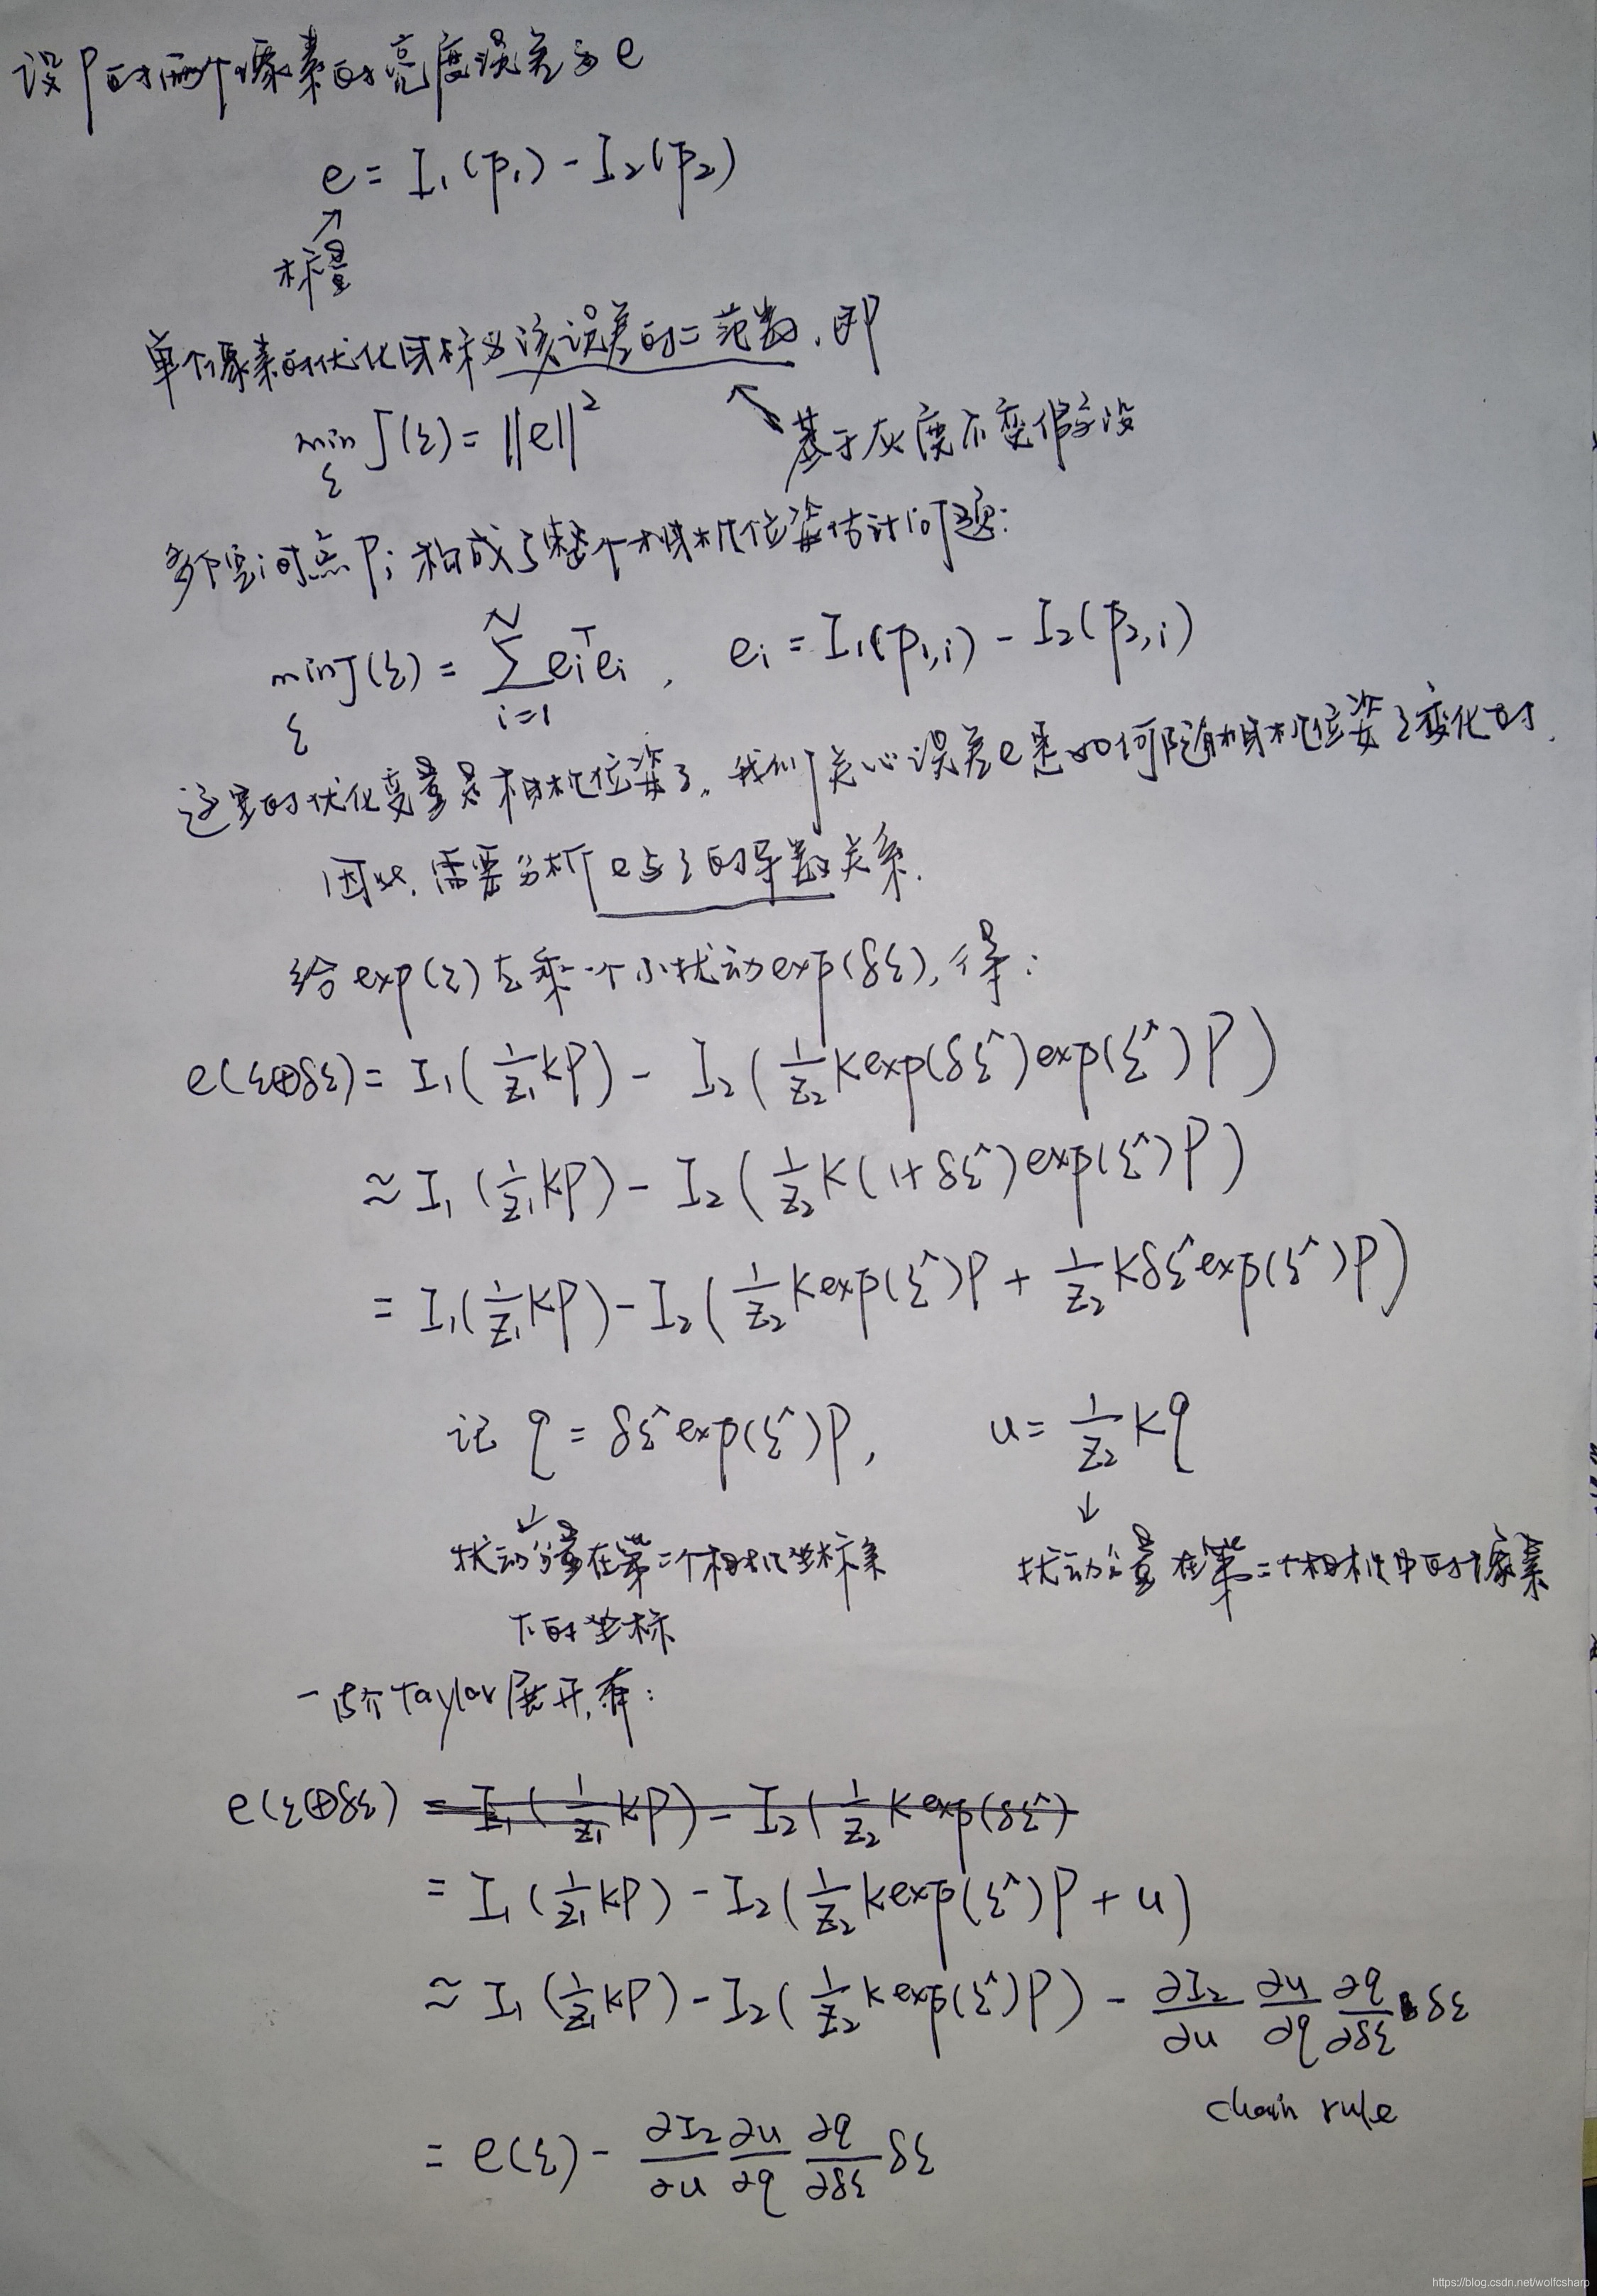 设P的两个像素的亮度误差为e
e = I₁(p₁) - I₂(p₂)
↗
标量
单个像素的优化目标为该误差的二范数,即
min J(ξ) = ||e||²
ξ
↖ 基于灰度不变假设
多个空间点Pi构成了整个相机位姿估计问题:
min J(ξ) = Σ eiᵀei , ei = I₁(p₁,i) - I₂(p₂,i)
ξ i=1 N
这里的优化变量是相机位姿ξ。我们关心误差e是如何随着相机位姿ξ变化的,
因此,需要分析e与ξ的导数关系.
给exp(ξ)左乘一个小扰动exp(δξ),得:
e(ξ⊕δξ) = I₁(1/Z₁ KP) - I₂(1/Z₂ K exp(δξ^) exp(ξ^) P)
≈ I₁(1/Z₁ KP) - I₂(1/Z₂ K(1+δξ^) exp(ξ^) P)
= I₁(1/Z₁ KP) - I₂(1/Z₂ K exp(ξ^)P + 1/Z₂ K δξ^ exp(ξ^)P)
记 q = δξ^ exp(ξ^)P, u = 1/Z₂ Kq
↓ ↓
扰动分量在第二个相机坐标系 扰动分量在第二个相机中的像素
下的坐标
一阶Taylor展开,有:
e(ξ⊕δξ) = I₁(1/Z₁ KP) - I₂(1/Z₂ K exp(δξ^)
= I₁(1/Z₁ KP) - I₂(1/Z₂ K exp(ξ^)P + u)
≈ I₁(1/Z₁ KP) - I₂(1/Z₂ K exp(ξ^)P) - ∂I₂/∂u ∂u/∂q ∂q/∂δξ δξ
chain rule
= e(ξ) - ∂I₂/∂u ∂u/∂q ∂q/∂δξ δξ
https://blog.csdn.net/wolfcsharp